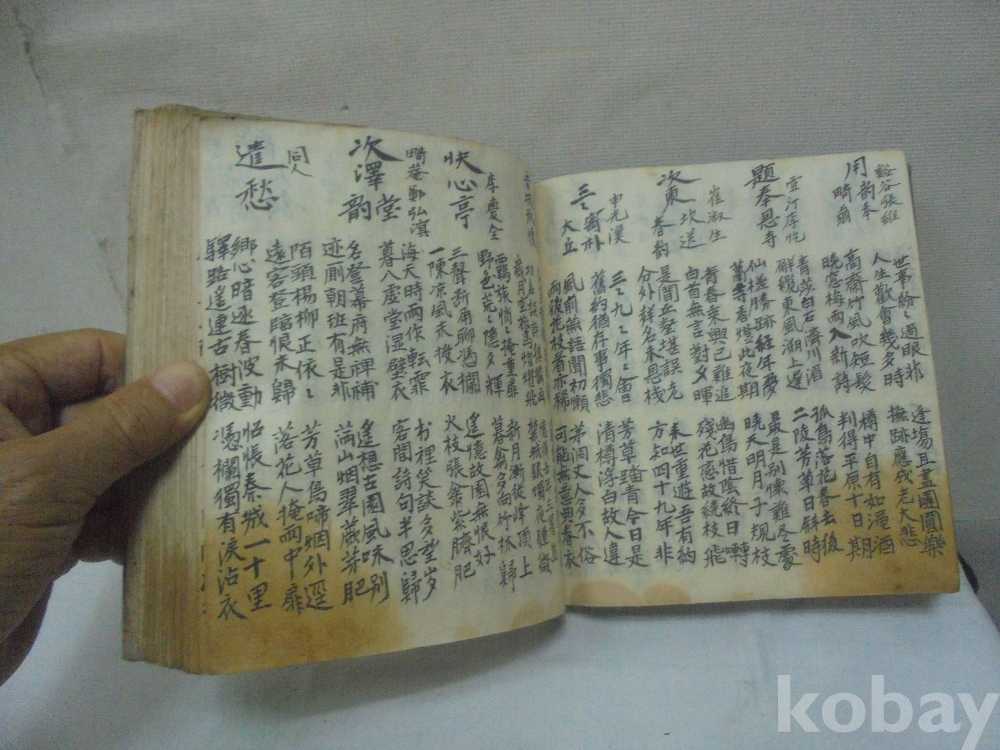 世事紛〻過眼非 逢場且盡團圓樂
人生歡會幾多時 撫跡應成老大悲
谿谷張維
用韵奉
畸翁
高齋竹風吹短髮 樽中自有如澠酒
晩窓梅雨入新詩 判得平原十日期
雪汀李忔
題奉恩寺
青莎白石濟川酒 孤島落花春去後
解纜東風湖上遲 二陵芳草日斜時
仙槎勝跡經年夢 最是別懷難冬處
蕭寺看燈此夜期 曉天明月子規枝
崔淑生
次東坎送
春韵
青春乘興已難進 幽鳥惜陰終日囀
白首無言對夕暉 殘花戀故繞枝飛
是間丘壑堪 來世重遊吾有約
分外 名未恩 方知四十九年非
申光漢
三〻寄朴
大丘
三〻九〻年〻會 芳草踏青今日是
舊約猶存事獨悲 清樽浮白故人違
風前燕語聞初嫩 茅洞丈人多不俗
雨後花枝看亦稀 可能無意曲春衣
歲月空驚
李慶全
快心亭
羈旅悄〻掩重扉 新月漸從峰頂上
野色茫〻隱夕輝 暮禽多向竹林歸
三聲新角聊憑欄 遙憶故園無恨好
一陳凉風未授衣 火枝張傘紫臍肥
畸菴鄭弘溟
次澤堂
韵
海天時雨作轉霏 裡笑談多坐岁
暮入虛堂濕壁衣 客間詩句半思歸
名登幕府無裨補 遙想古園風味別
迹厠朝班有是非 滿山烟翠蕨芽肥
同人
遣愁
陌頭楊柳正依〻 芳草鳥啼烟外逕
遠客登臨恨未歸 落花人掩雨中扉
鄉心暗逐春波動 怊悵秦城一十里
驛路遙連古樹微 憑欄獨有淚沾衣
kobay